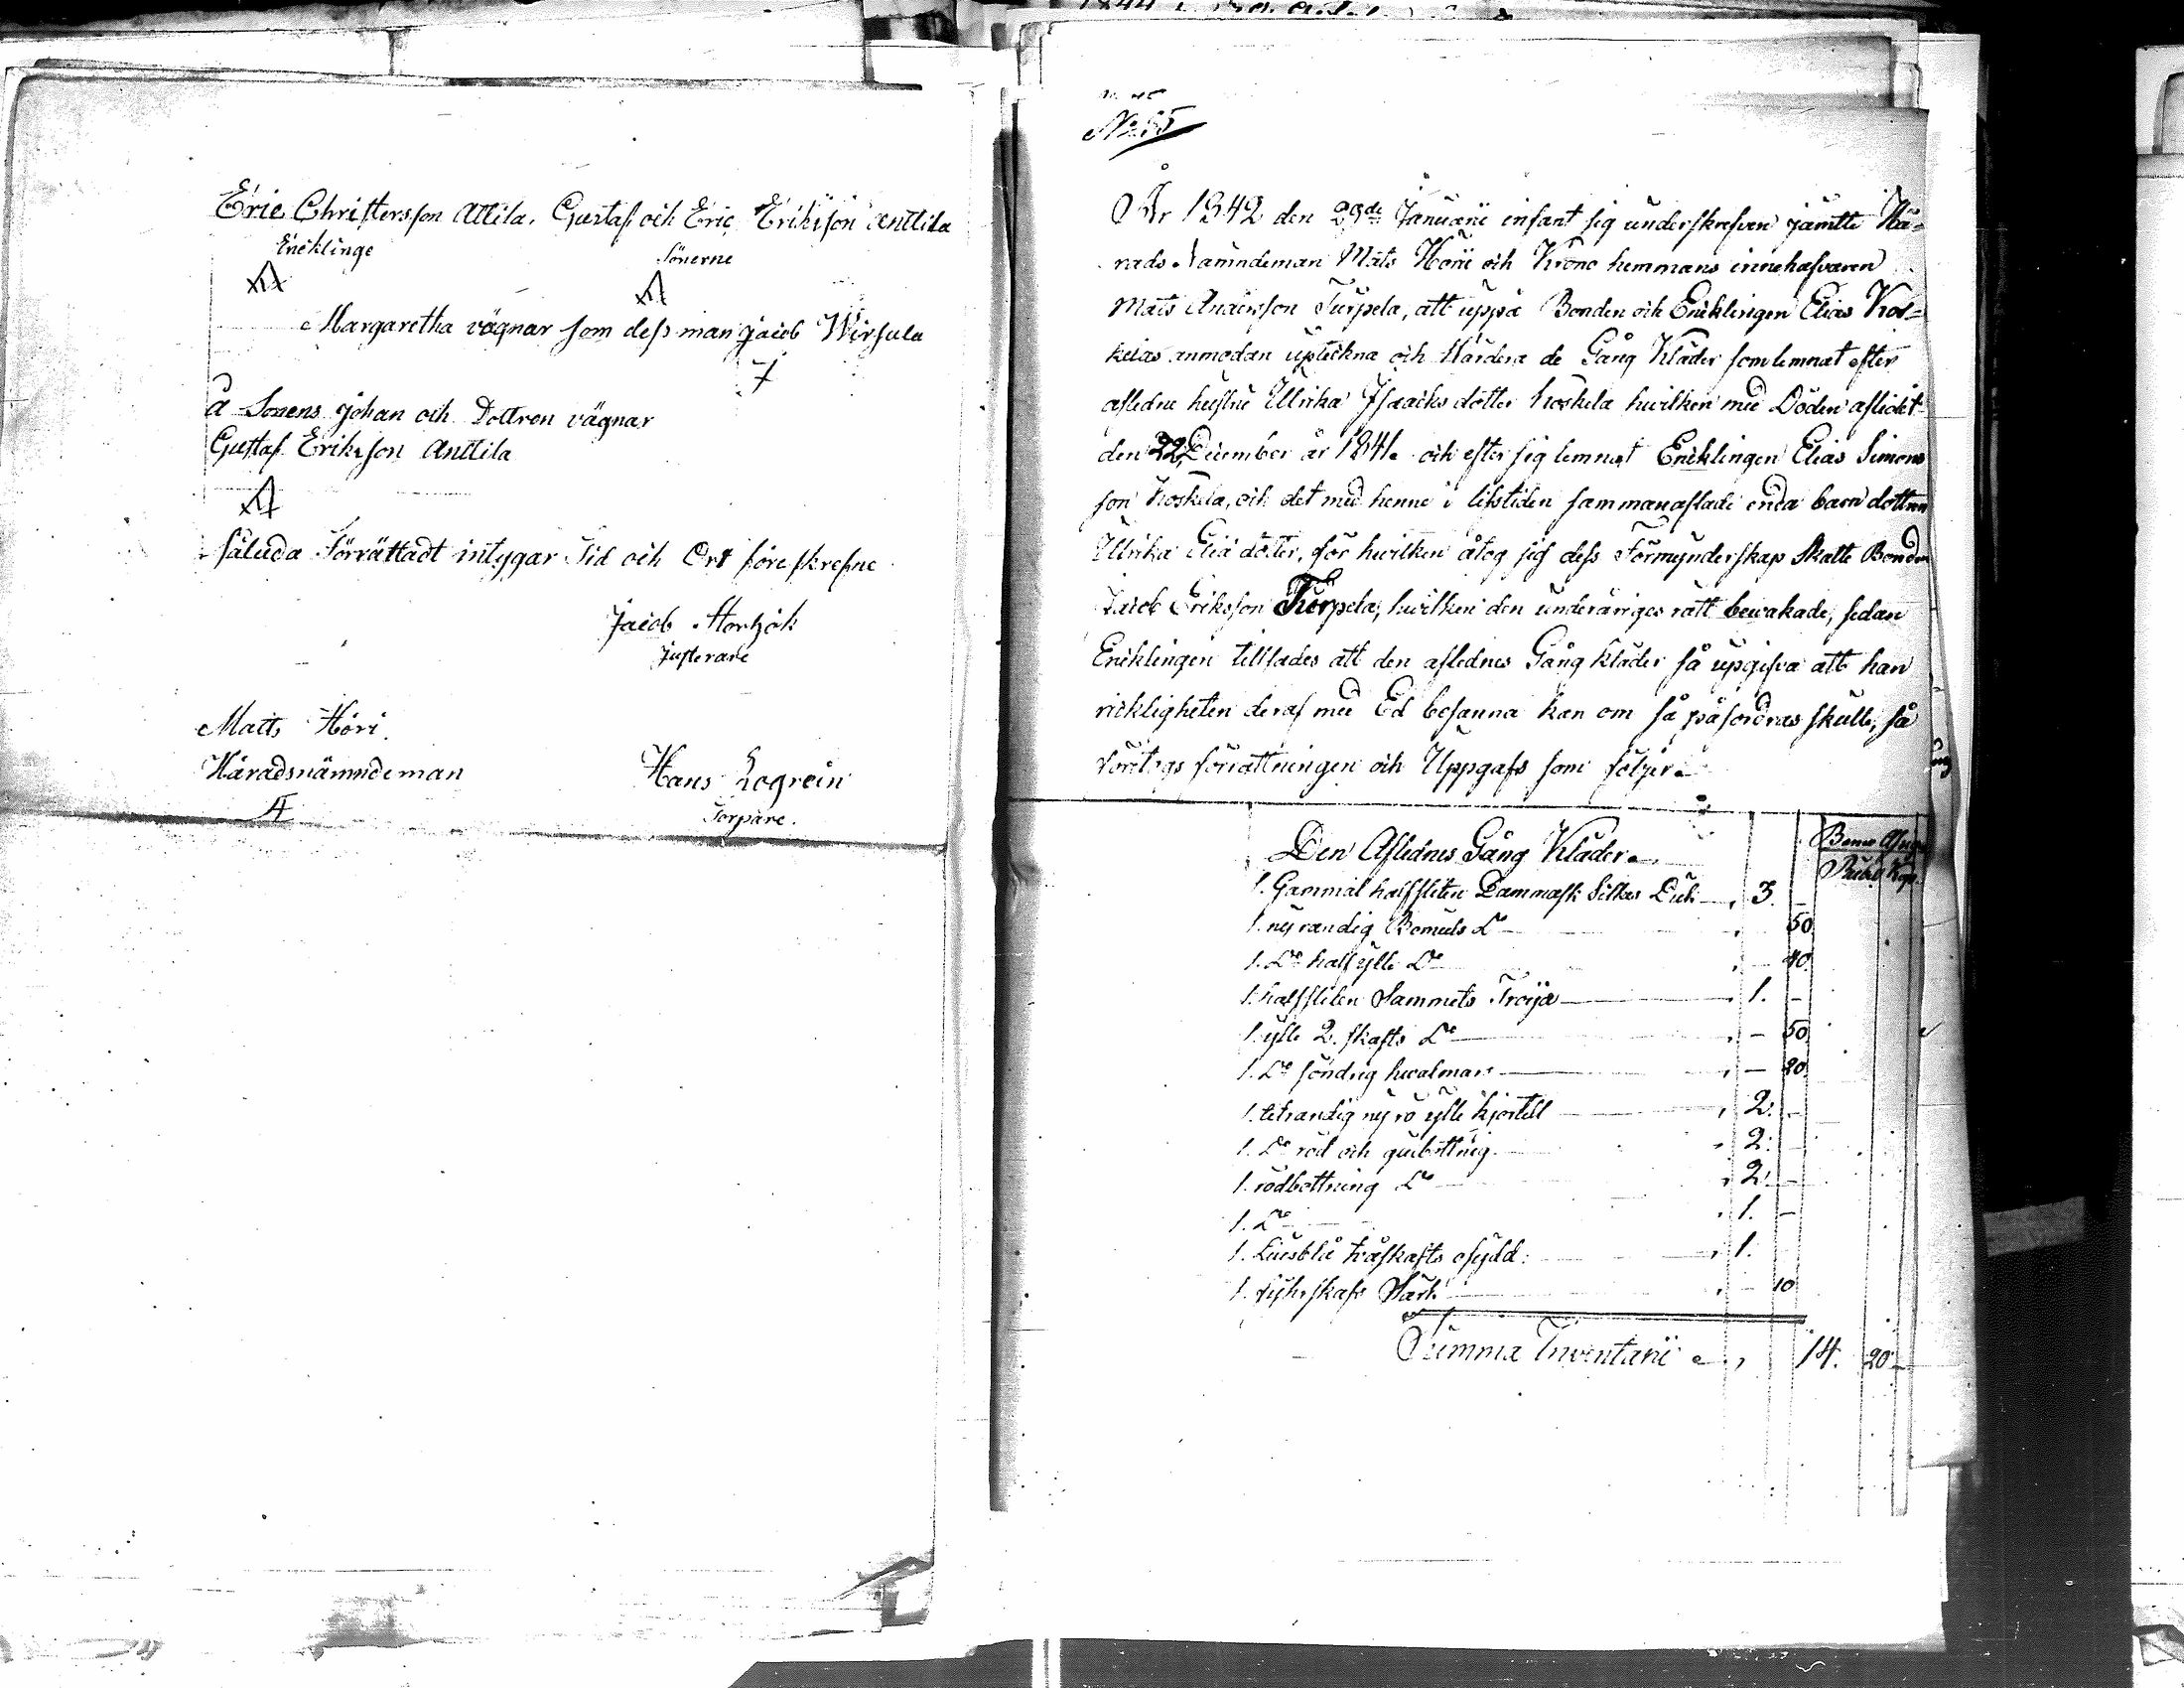 Eric Christersson Attila. Gustaf och Eric Eriksson Anttila
Encklinge
Sönerne
Margaretha vägnar som dess man Jacob Wirsula
å Sonens Johan och Dottren vägnar
Gustaf Eriksson Anttila
således Förrättadt intygar Tid och Ort föreskrefne
Jacob
Justerare
Matts Höri
Häradsnämndeman
Hans Logrein
Torpare.
No 65
År 1842 den 29de Januarii infant sig underskrefven jämtte Hä-
rads Nämndeman Mats Hörii och Krono hemmans innehafvaren
Mats Andersson Turpela, att uppå Bonden och Enklingen Elias Kos-
kelas anmodan upteckna och Värdera de Gång Kläder som lemnat efter
afledne hustru Ullrika Isaacks dotter Koskela hvilken med Döden aflidit
den 22 December år 1841. och efter sig lemnat Encklingen Elias Simons
son Koskela, och det med henne i lifstiden sammanaflade enda barn dottren
Ullrika Elia dotter, för hvilken åtog sig dess Förmynderskap Skatte Bonden
Jacob Eriksson Turpela, hvilken den underåriges rätt bewakade, sedan
Encklingen tillsades att den aflednes Gång kläder så upgifva att han
ricktigheten deraf med Ed besanna kan om så påfordras skulle, så
företogs förrättningen och Uppgafs som följer.
Den Aflednes Gång Kläder.
Rubel Kop.
1. Gammal halfsliten Dammask Silkes Duk 3. -
1. ny randig Bomuls Do 50.
1. Do half ylle Do - 40.
1. halfsliten Sammets Tröija 1. -
1. ylle 2. skafts Do - 50.
1. Do söndrig hwalmars - 20.
1. ny rö ylle kjortell 2. -
1. Do röd och gulbottnig 2. -
1. rödbottning Do 2. -
1. Do 1. -
1. Liusblå tvåskafts osydd 1.
1. Särk - 10
Summa Inventarii 14. 20